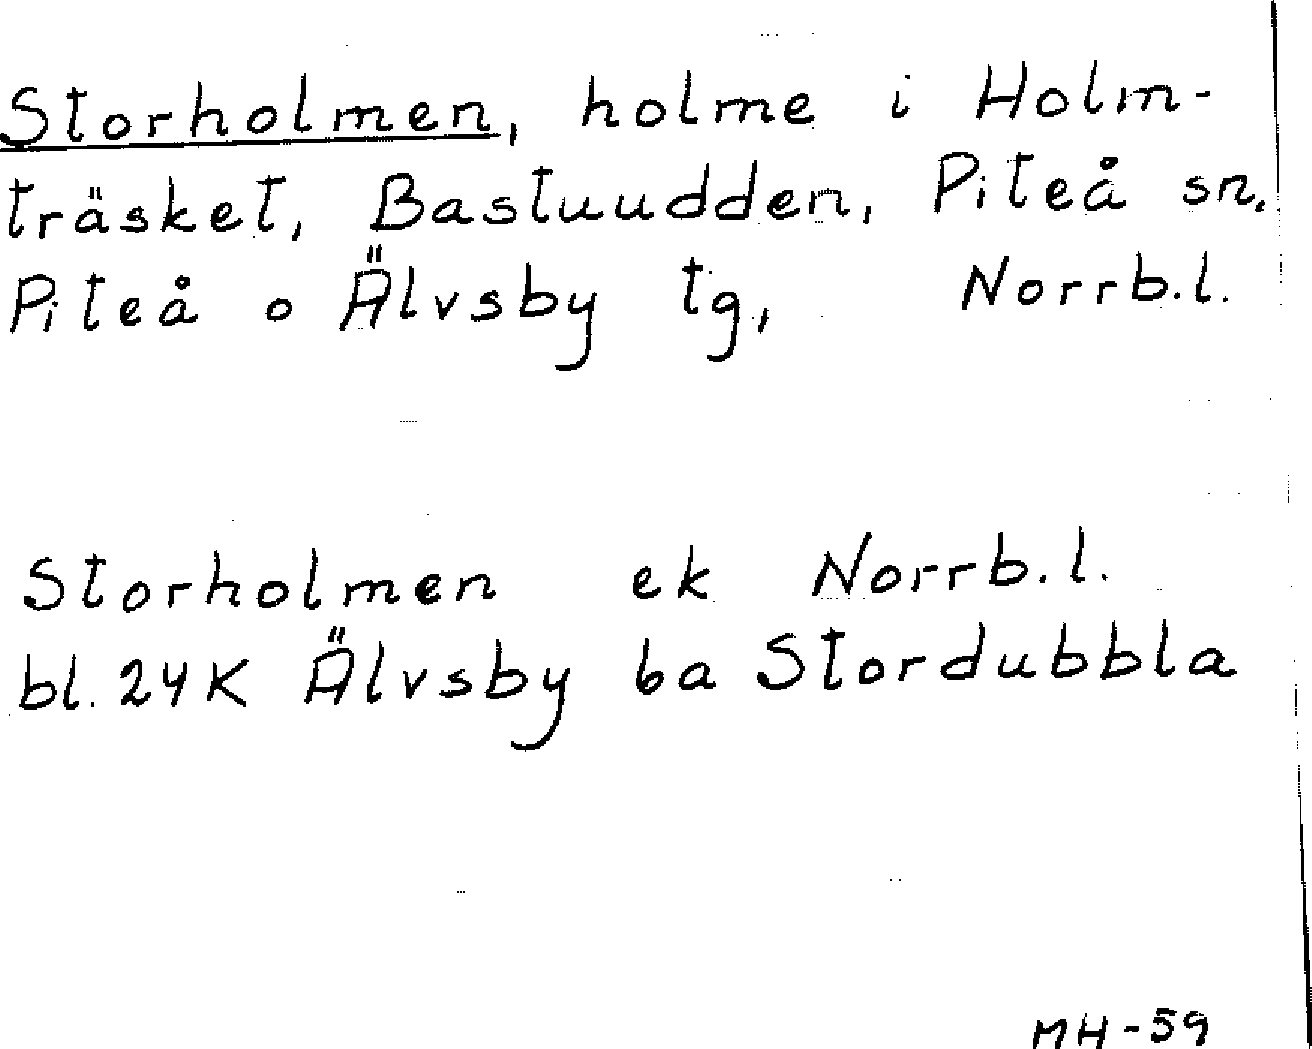 Storholmen, holme i Holm-
träsket, Bastuudden, Piteå sn,
Piteå o Älvsby tg, Norrb.l.
Storholmen ek Norrb.l.
bl. 24K Älvsby 6a Stordubbla
MH-59